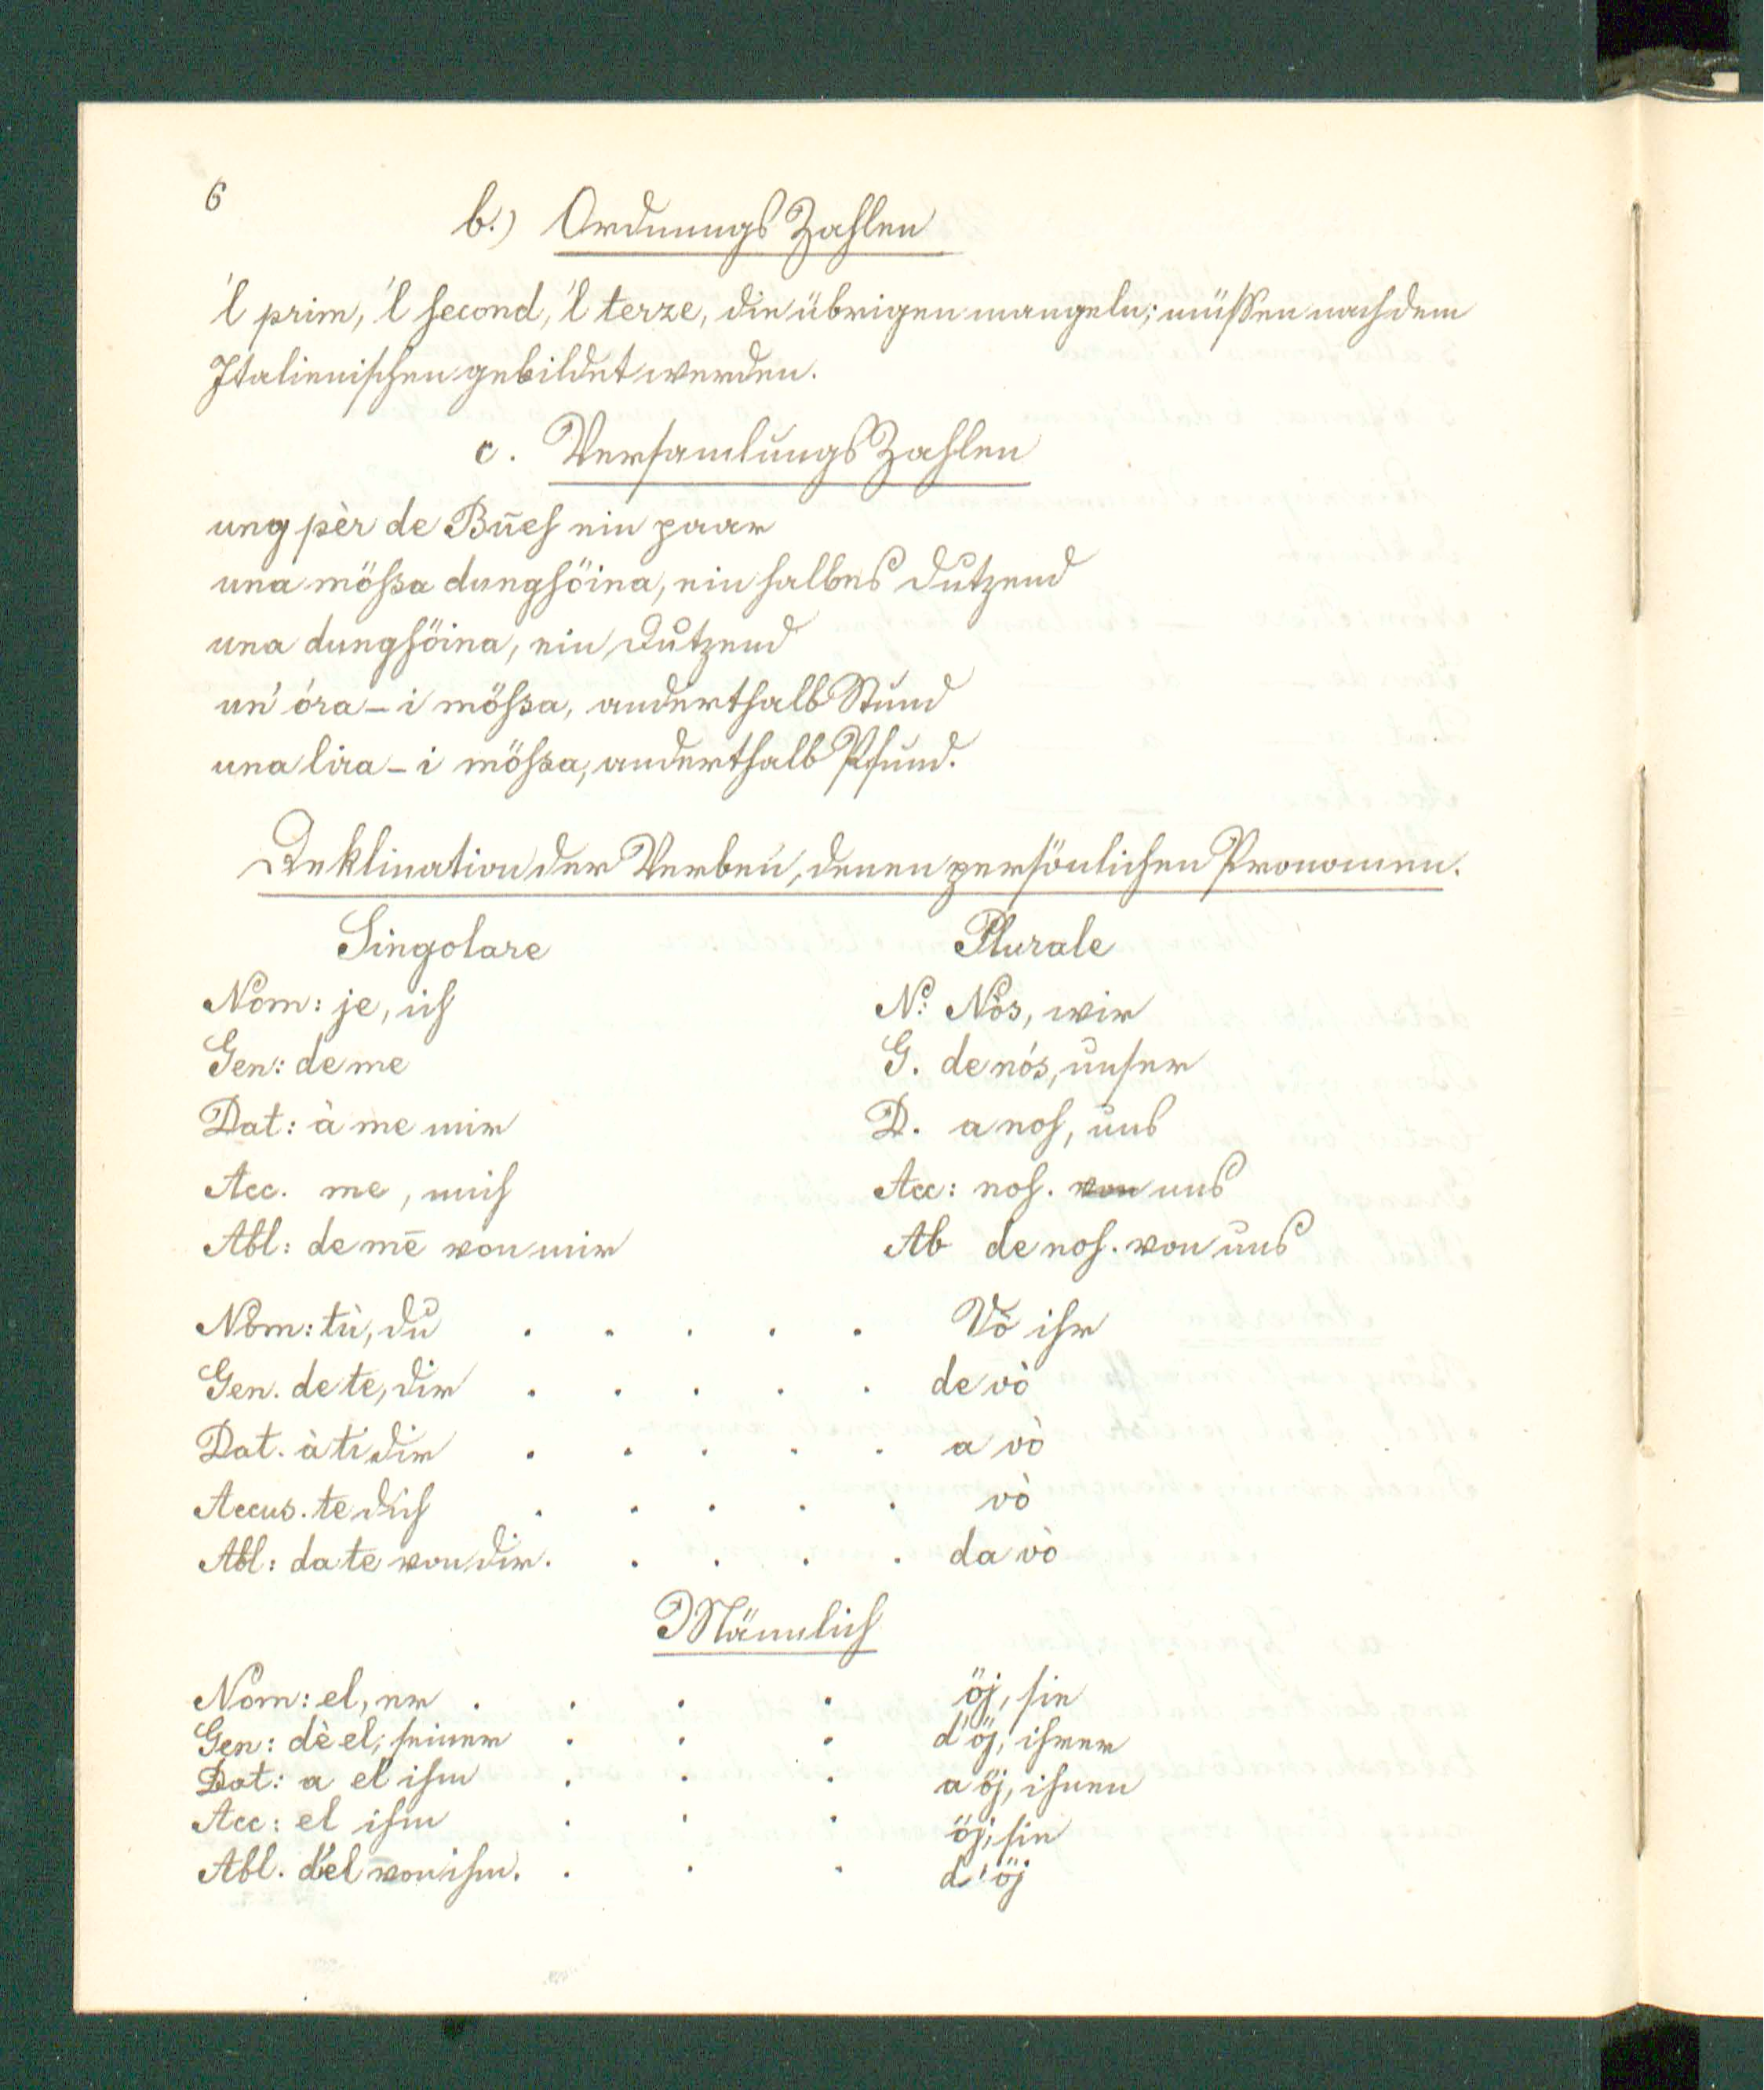 6
b.) Ordnungs Zahlen
'l prim, 'l second, 'l terze, die übrigen mangeln; müssen nach dem
Italienischen gebildet werden.
c. Versamlungs Zahlen
ung pèr de Bueh ein paar
una möhsa dunghöina, ein halbes Dutzend
una dunghöina, ein Dutzend
un' óra - i möhsa, anderthalb Stund
una lira - i möhsa, anderthalb Pfund.
Deklination der Verben, denen persönlichen Pronomen.
Singolare Plurale
Nom: je, ich N: Nòs, wir
Gen: de me G. de nós, unser
Dat: à me mir D. a noh, uns
Acc. me, mich Acc: noh. von uns
Abl: de mē von mir Ab de noh. von uns
Nom: tù, du . . . . . Vò ihr
Gen. de te, dir . . . . . de vò
Dat. à ti dir . . . . . a vò
Accus. te dich . . . . . vò
Abl: da te von dir. . . . . da vò
Männlich
Nom: el, er . . . . öj, sie
Gen: dè el, seiner . . . d'öj, ihrer
Dat: a el ihm . . . a öj, ihnen
Acc: el ihm . . . öj, sie
Abl. d'el von ihm. . . . d'öj